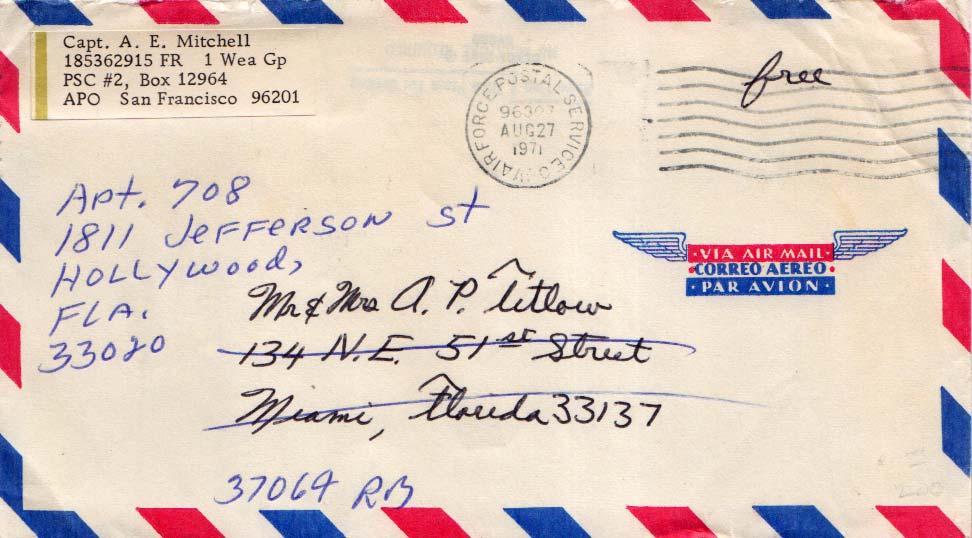 Capt. A. E. Mitchell
185362915 FR 1 Wea Gp
PSC #2, Box 12964
APO San Francisco 96201
AIR FORCE POSTAL SERVICE
AUG 27
1971
free
Apt. 708
1811 JEFFERSON St
HOLLYWOOD,
FLA.
33020
VIA AIR MAIL
CORREO AEREO
PAR AVION
Mr & Mrs A. P. Titlow
134 N.E. 51st Street
Miami, Florida 33137
37064 RB
200